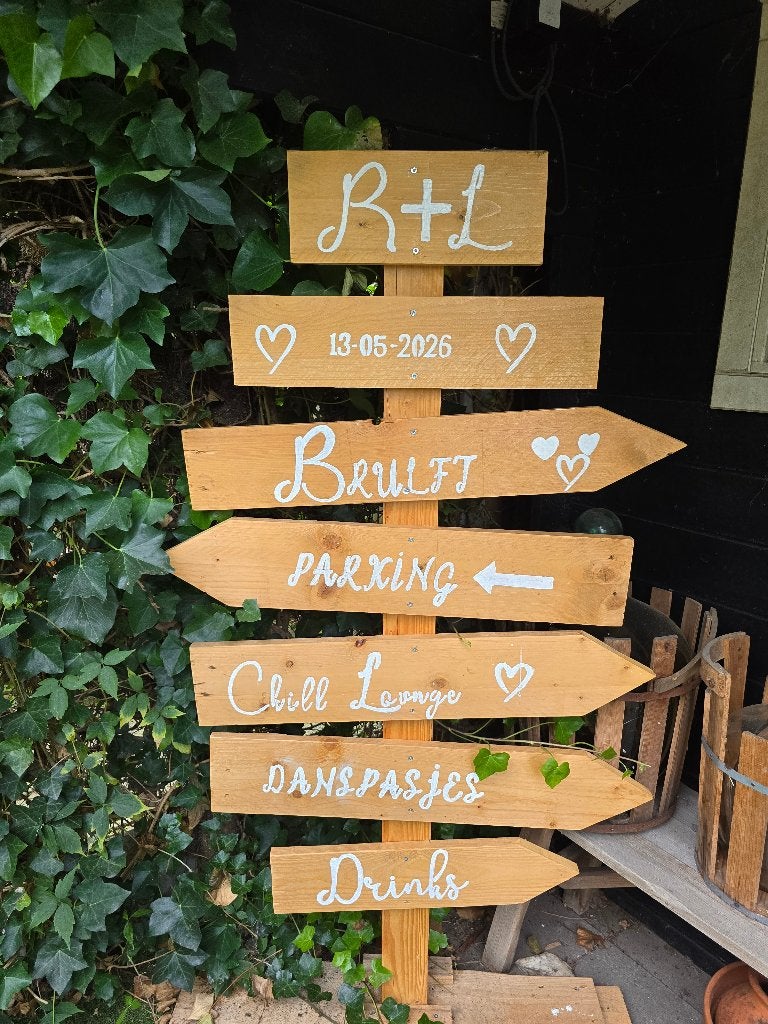 R+L
13-05-2026
BRULFT
PARKING
Chill Lounge
DANSPASJES
Drinks